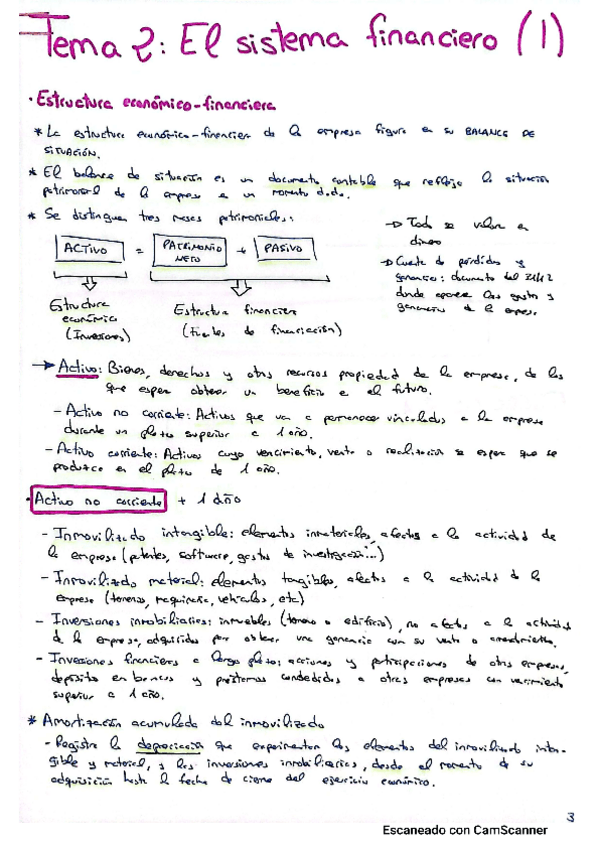 Tema 2: El sistema financiero (1)
· Estructura económico-financiera
* La estructura económico-financiera de la empresa figura en su BALANCE DE
SITUACIÓN.
* El balance de situación es un documento contable que refleja la situación
patrimonial de la empresa en un momento dado.
* Se distinguen tres masas patrimoniales:
ACTIVO = PATRIMONIO NETO + PASIVO
Estructura
económica
(Inversiones)
Estructura financiera
(fuentes de financiación)
→ Todo se valora en
dinero
→ Cuenta de pérdidas y
ganancias: documento del
donde aparecen los gastos y
ganancias de la empresa.
→ Activo: Bienes, derechos y otros recursos propiedad de la empresa, de los
que espera obtener un beneficio en el futuro.
- Activo no corriente: Activos que van a permanecer vinculados a la empresa
durante un plazo superior a 1 año.
- Activo corriente: Activos cuyo vencimiento, venta o realización se espera que se
produzca en el plazo de 1 año.
· Activo no corriente + 1 año
- Inmovilizado intangible: elementos inmateriales, afectos a la actividad de
la empresa (patentes, software, gastos de investigación...)
- Inmovilizado material: elementos tangibles, afectos a la actividad de la
empresa (terrenos, maquinaria, vehículos, etc)
- Inversiones inmobiliarias: inmuebles (terreno o edificio), no afectos a la actividad
de la empresa, adquiridos para obtener una ganancia con su venta o arrendamiento.
- Inversiones financieras a largo plazo: acciones y participaciones de otras empresas,
depósito en bancos y préstamos concedidos a otras empresas con vencimiento
superior a 1 año.
* Amortización acumulada del inmovilizado
- Registra la depreciación que experimentan los elementos del inmovilizado intan-
gible y material, y las inversiones inmobiliarias, desde el momento de su
adquisición hasta la fecha de cierre del ejercicio económico.
3
Escaneado con CamScanner